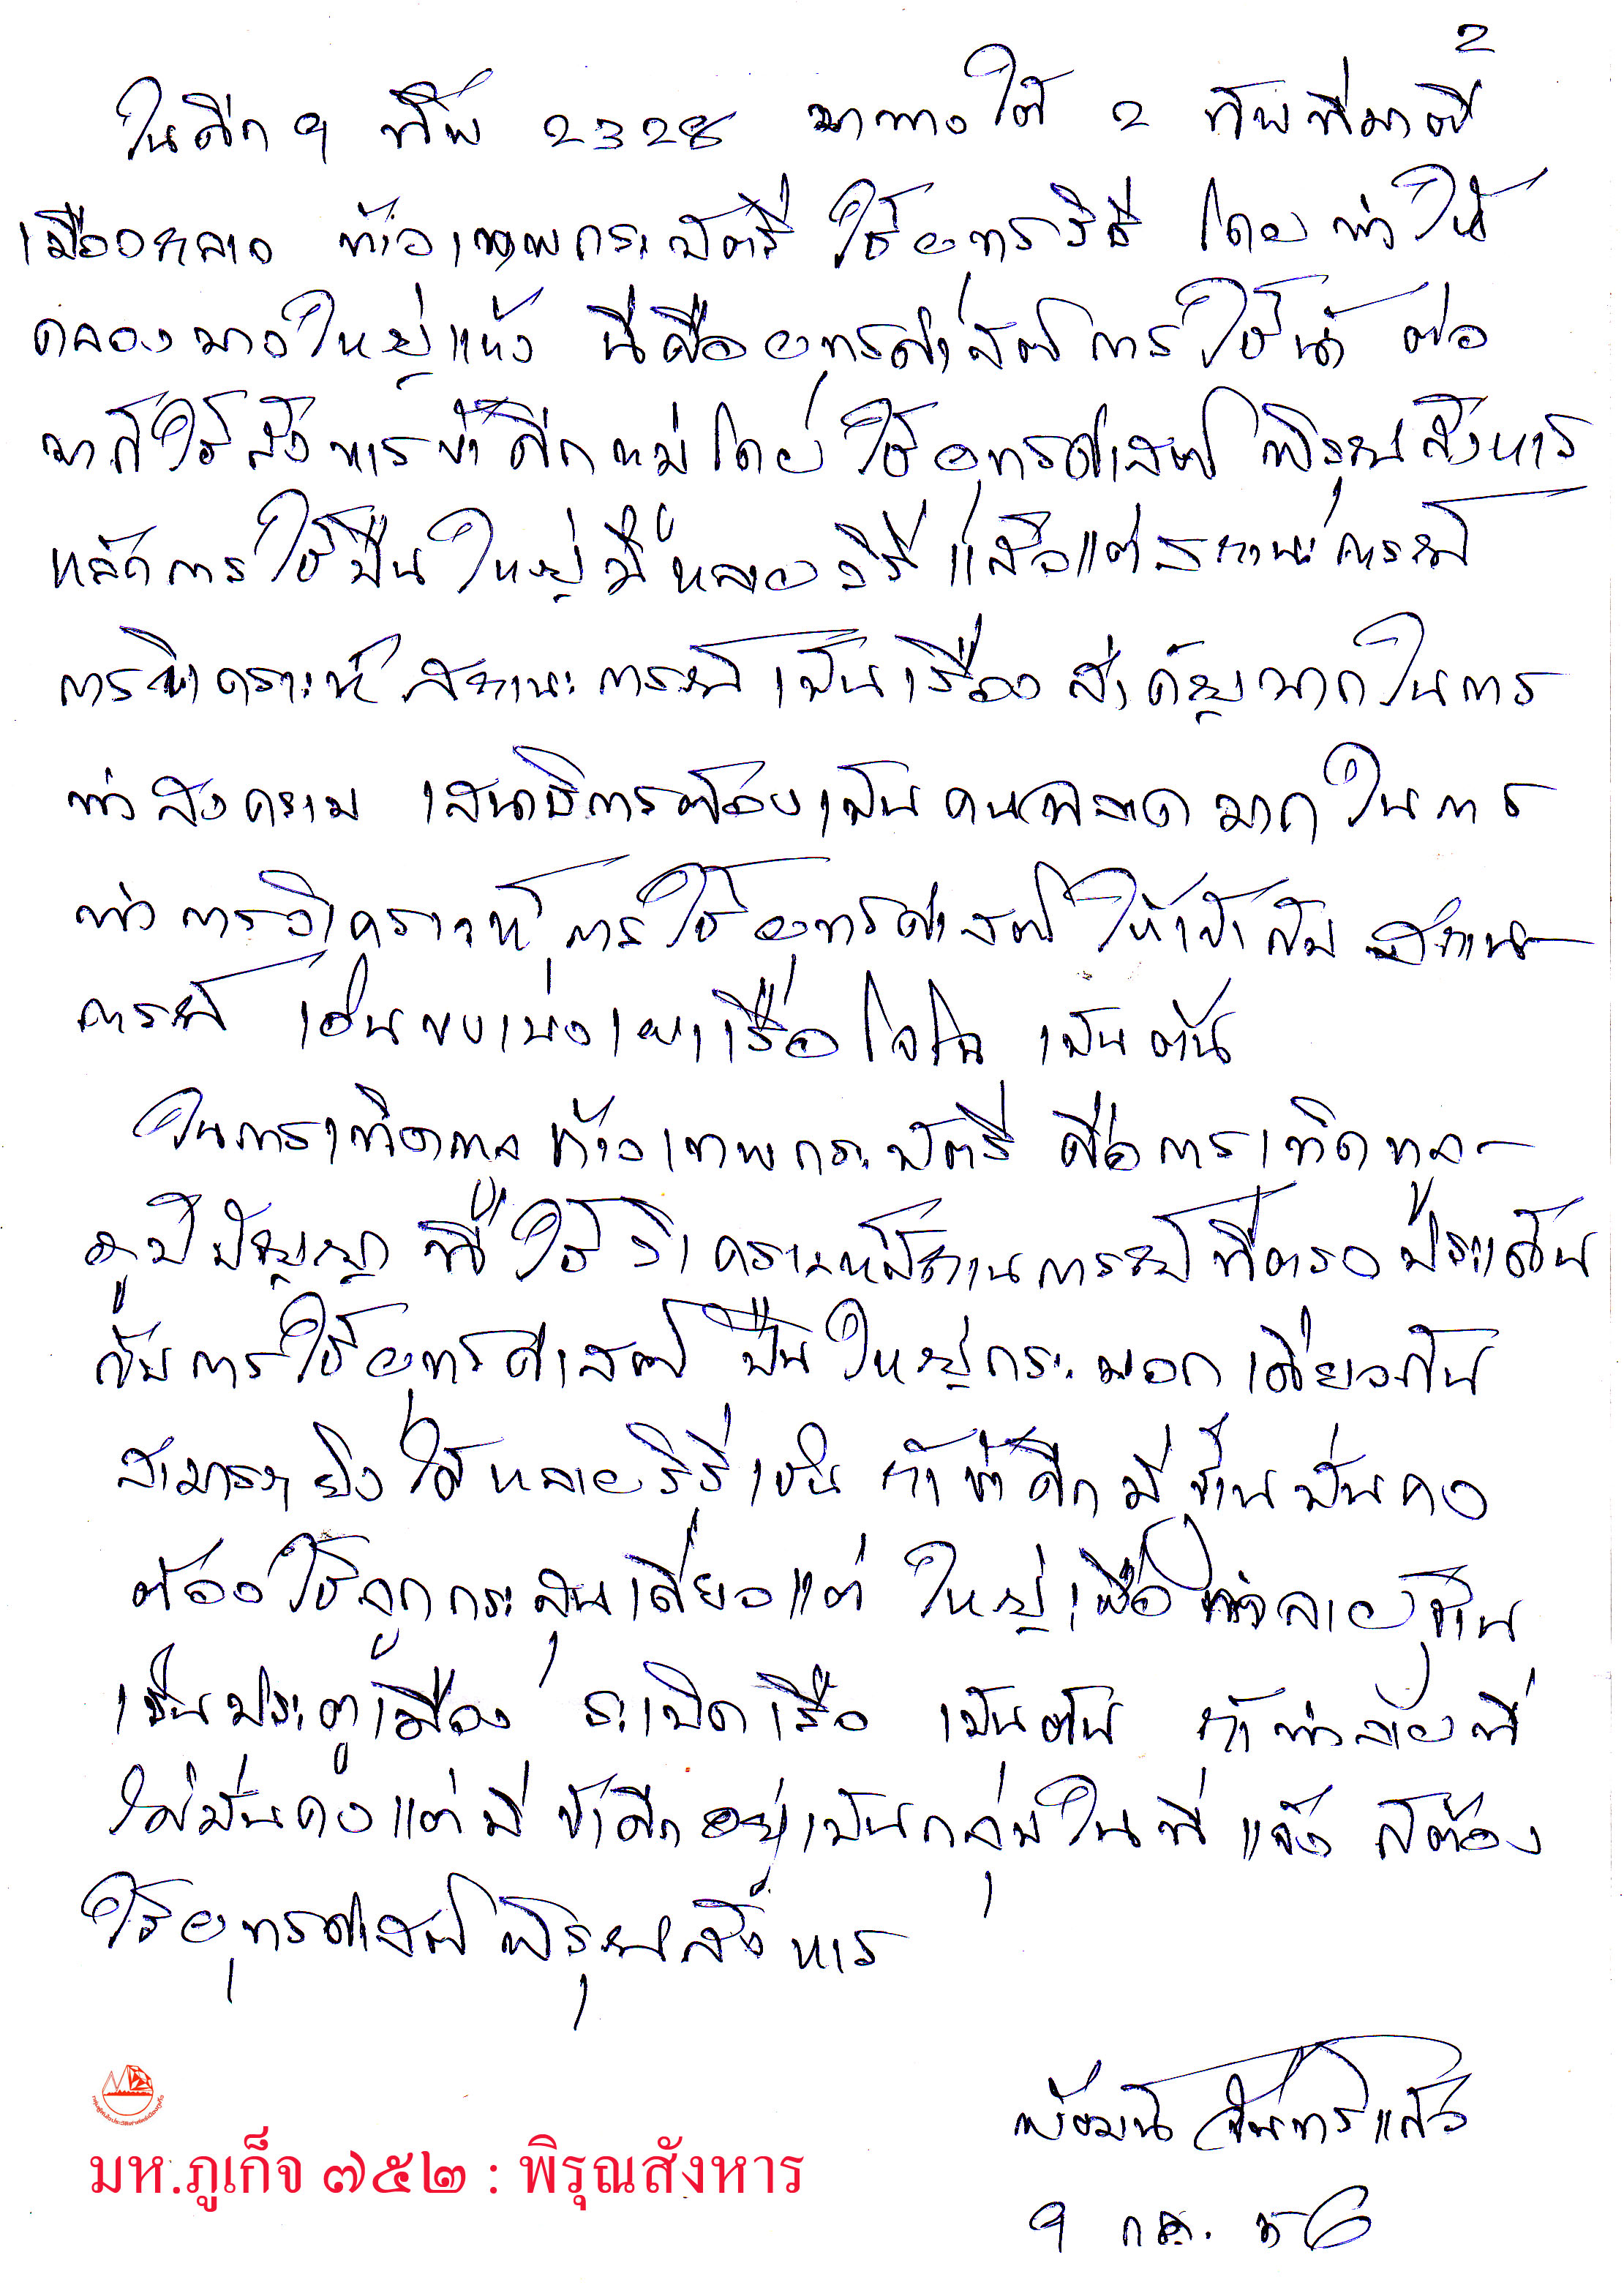 2
ในศึก 9 ทัพ 2328 มาทางใต้ 2 ทัพที่มาตี
เมืองถลาง ท้าวเทพกระษัตรี ใช้ยุทธวิธี โดยทำให้
คลองบางใหญ่แห้ง นี่คือยุทธศาสตร์การใช้น้ำ ต่อ
มาก็ใช้สังหารข้าศึกหมู่โดย ใช้ยุทธศาสตร์พิรุณสังหาร
หลักการใช้ปืนใหญ่มีหลายวิธี แล้วแต่สถานะการณ์
การวิเคราะห์สถานะการณ์เป็นเรื่องสำคัญมากในการ
ทำสงคราม เสนาธิการต้องเป็นคนฉลาดมากในการ
ทำการวิเคราะห์การใช้ยุทธศาสตร์ให้เข้ากับสถาน
การณ์ เช่นขงเบ้งเผาเรือโจโฉ เป็นต้น
ในการเทิดทูลท้าวเทพกระษัตรี คือการเทิดทูล
ภูมิปัญญา ที่ใช้วิเคราะห์สถานการณ์ที่ตรงประเด็น
กับการใช้ยุทธศาสตร์ ปืนใหญ่กระบอกเดียวกัน
สามารถยิงได้หลายวิธีเช่น ถ้าข้าศึกมีฐานมั่นคง
ต้องใช้ลูกกระสุนเดี่ยวแต่ใหญ่เพื่อทำลายฐาน
เช่นประตูเมือง ระเบิดเรือ เป็นต้น ถ้าทำลายที่
ไม่มั่นคงแต่มีข้าศึกอยู่เป็นกลุ่มในที่แจ้ง ก็ต้อง
ใช้ยุทธศาสตร์พิรุณสังหาร
จันทร์แก้ว
9 กค. 56
มห.ภูเก็จ ๗๕๒ : พิรุณสังหาร